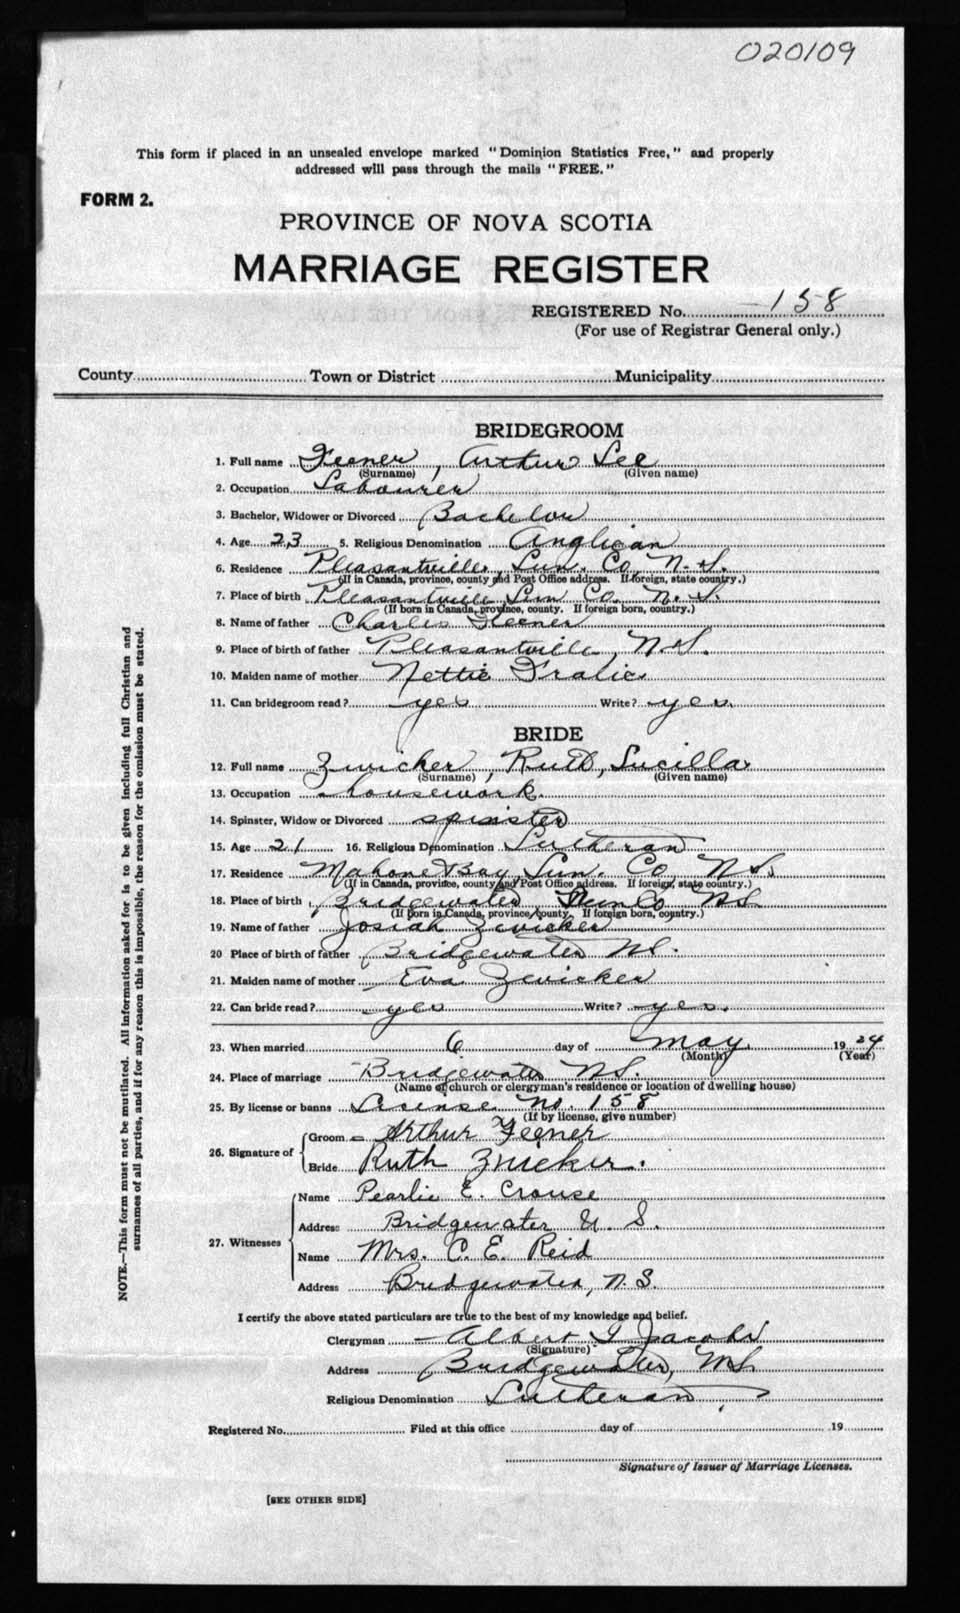 020109
This form if placed in an unsealed envelope marked "Dominion Statistics Free," and properly
addressed will pass through the mails "FREE."
FORM 2.
PROVINCE OF NOVA SCOTIA
MARRIAGE REGISTER
REGISTERED No. 158
(For use of Registrar General only.)
County Town or District Municipality
BRIDEGROOM
1. Full name Feener, Arthur Lee
(Surname) (Given name)
2. Occupation Labourer
3. Bachelor, Widower or Divorced Bachelor
4. Age 23 5. Religious Denomination Anglican
6. Residence Pleasantville, Lun. Co, N.S.
(If in Canada, province, county and Post Office address. If foreign, state country.)
7. Place of birth Pleasantville Lun Co. N.S.
(If born in Canada, province, county. If foreign born, country.)
8. Name of father Charles Feener
9. Place of birth of father Pleasantville, N.S.
10. Maiden name of mother Nettie Fralic
11. Can bridegroom read? yes Write? yes.
BRIDE
12. Full name Zwicker, Ruth, Lucilla
(Surname) (Given name)
13. Occupation housework.
14. Spinster, Widow or Divorced spinster
15. Age 21 16. Religious Denomination Lutheran
17. Residence Mahone Bay, Lun. Co, N.S.
(If in Canada, province, county and Post Office address. If foreign, state country.)
18. Place of birth Bridgewater, Lun Co NS
(If born in Canada, province county. If foreign born, country.)
19. Name of father Josiah Zwicker
20 Place of birth of father Bridgewater NS.
21. Maiden name of mother Eva Zwicker
22. Can bride read? yes Write? yes.
23. When married 6 day of May 1924
(Month) (Year)
24. Place of marriage Bridgewater NS.
(Name of church or clergyman's residence or location of dwelling house)
25. By license or banns License No. 158
(If by license, give number)
26. Signature of Groom Arthur Feener
Bride Ruth Zwicker.
27. Witnesses Name Pearlie E. Crouse
Address Bridgewater N. S.
Name Mrs. C. E. Reid
Address Bridgewater, N.S.
I certify the above stated particulars are true to the best of my knowledge and belief.
Clergyman Albert I Jacobi
(Signature)
Address Bridgewater, NS.
Religious Denomination Lutheran
Registered No. Filed at this office day of 19
Signature of Issuer of Marriage Licenses.
[SEE OTHER SIDE]
NOTE.—This form must not be mutilated. All information asked for is to be given including full Christian and
surnames of all parties, and if for any reason this is impossible, the reason for the omission must be stated.